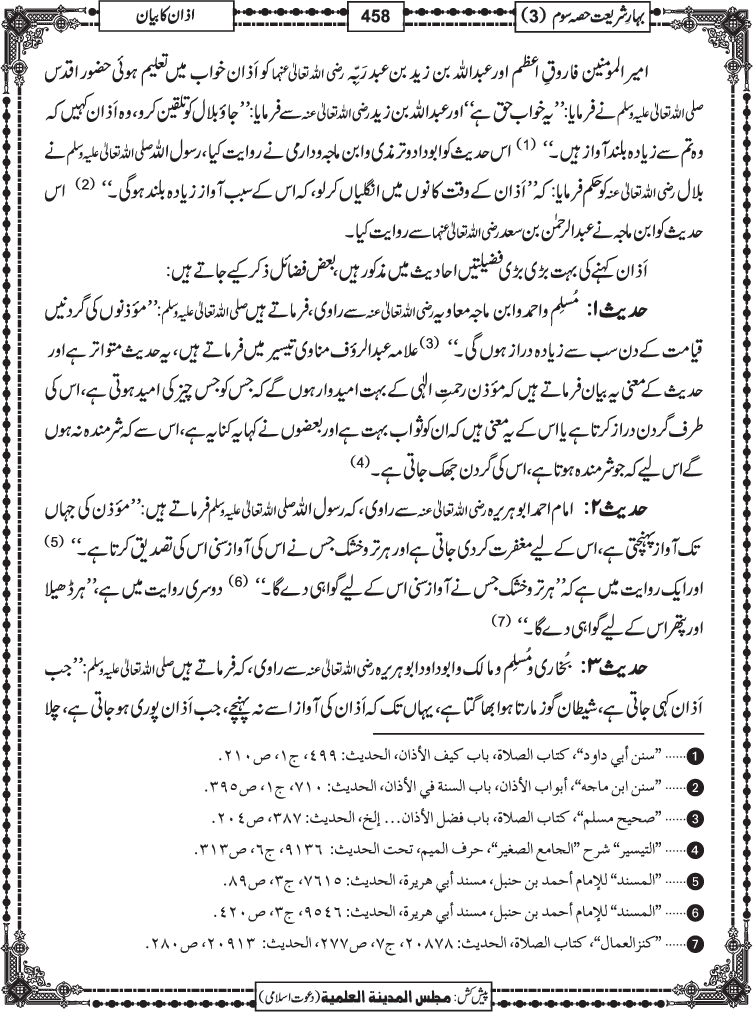 بہارِ شریعت حصہ سوم (3)
458
اذان کا بیان
امیر المومنین فاروقِ اعظم اور عبداللہ بن زید بن عبد ربّہٖ رضی اللہ تعالیٰ عنہما کو اَذان خواب میں تعلیم ہوئی حضور اقدس
صلی اللہ تعالیٰ علیہ وسلم نے فرمایا: ’’یہ خواب حق ہے‘‘ اور عبداللہ بن زید رضی اللہ تعالیٰ عنہ سے فرمایا: ’’جاؤ بلال کو تلقین کرو، وہ اَذان کہیں کہ
وہ تم سے زیادہ بلند آواز ہیں۔‘‘ (1) اس حدیث کو ابو داود و ترمذی و ابن ماجہ و دارمی نے روایت کیا، رسول اللہ صلی اللہ تعالیٰ علیہ وسلم نے
بلال رضی اللہ تعالیٰ عنہ کو حکم فرمایا: کہ ’’اَذان کے وقت کانوں میں انگلیاں کرلو، کہ اس کے سبب آواز زیادہ بلند ہوگی۔‘‘ (2) اس
حدیث کو ابن ماجہ نے عبدالرحمٰن بن سعد رضی اللہ تعالیٰ عنہما سے روایت کیا۔
اَذان کہنے کی بہت بڑی بڑی فضیلتیں احادیث میں مذکور ہیں، بعض فضائل ذکر کیے جاتے ہیں:
حدیث ۱: مُسلِم و احمد و ابن ماجہ معاویہ رضی اللہ تعالیٰ عنہ سے راوی، فرماتے ہیں صلی اللہ تعالیٰ علیہ وسلم: ’’مؤذنوں کی گردنیں
قیامت کے دن سب سے زیادہ دراز ہوں گی۔‘‘ (3) علامہ عبدالرؤف مناوی تیسیر میں فرماتے ہیں، یہ حدیث متواتر ہے اور
حدیث کے معنی یہ بیان فرماتے ہیں کہ مؤذن رحمتِ الٰہی کے بہت امیدوار ہوں گے کہ جس کو جس چیز کی امید ہوتی ہے، اس کی
طرف گردن دراز کرتا ہے یا اس کے یہ معنی ہیں کہ ان کو ثواب بہت ہے اور بعضوں نے کہا یہ کنایہ ہے، اس سے کہ شرمندہ نہ ہوں
گے اس لیے کہ جو شرمندہ ہوتا ہے، اس کی گردن جھک جاتی ہے۔ (4)
حدیث ۲: امام احمد ابوہریرہ رضی اللہ تعالیٰ عنہ سے راوی، کہ رسول اللہ صلی اللہ تعالیٰ علیہ وسلم فرماتے ہیں: ’’مؤذن کی جہاں
تک آواز پہنچتی ہے، اس کے لیے مغفرت کر دی جاتی ہے اور ہر تر و خشک جس نے اس کی آواز سنی اس کی تصدیق کرتا ہے۔‘‘ (5)
اور ایک روایت میں ہے کہ ’’ہر تر و خشک جس نے آواز سنی اس کے لیے گواہی دے گا۔‘‘ (6) دوسری روایت میں ہے، ’’ہر ڈھیلا
اور پتھر اس کے لیے گواہی دے گا۔‘‘ (7)
حدیث ۳: بُخاری و مُسلِم و مالک و ابو داود ابوہریرہ رضی اللہ تعالیٰ عنہ سے راوی، کہ فرماتے ہیں صلی اللہ تعالیٰ علیہ وسلم: ’’جب
اَذان کہی جاتی ہے، شیطان گوز مارتا ہوا بھاگتا ہے، یہاں تک کہ اَذان کی آواز اسے نہ پہنچے، جب اَذان پوری ہو جاتی ہے، چلا
1 ...... ”سنن أبي داود“، كتاب الصلاة، باب كيف الأذان، الحديث: ٤٩٩، ج١، ص٢١٠.
2 ...... ”سنن ابن ماجه“، أبواب الأذان، باب السنة في الأذان، الحديث: ٧١٠، ج١، ص٣٩٥.
3 ...... ”صحيح مسلم“، كتاب الصلاة، باب فضل الأذان... إلخ، الحديث: ٣٨٧، ص٢٠٤.
4 ...... ”التيسير“ شرح ”الجامع الصغير“، حرف الميم، تحت الحديث: ٩١٣٦، ج٦، ص٣١٣.
5 ...... ”المسند“ للإمام أحمد بن حنبل، مسند أبي هريرة، الحديث: ٧٦١٥، ج٣، ص٨٩.
6 ...... ”المسند“ للإمام أحمد بن حنبل، مسند أبي هريرة، الحديث: ٩٥٤٦، ج٣، ص٤٢٠.
7 ...... ”كنز العمال“، كتاب الصلاة، الحديث: ٢٠٨٧٨، ج٧، ص٢٧٧، الحديث: ٢٠٩١٣، ص٢٨٠.
پیش کش: مجلس المدینة العلمیة (دعوت اسلامی)